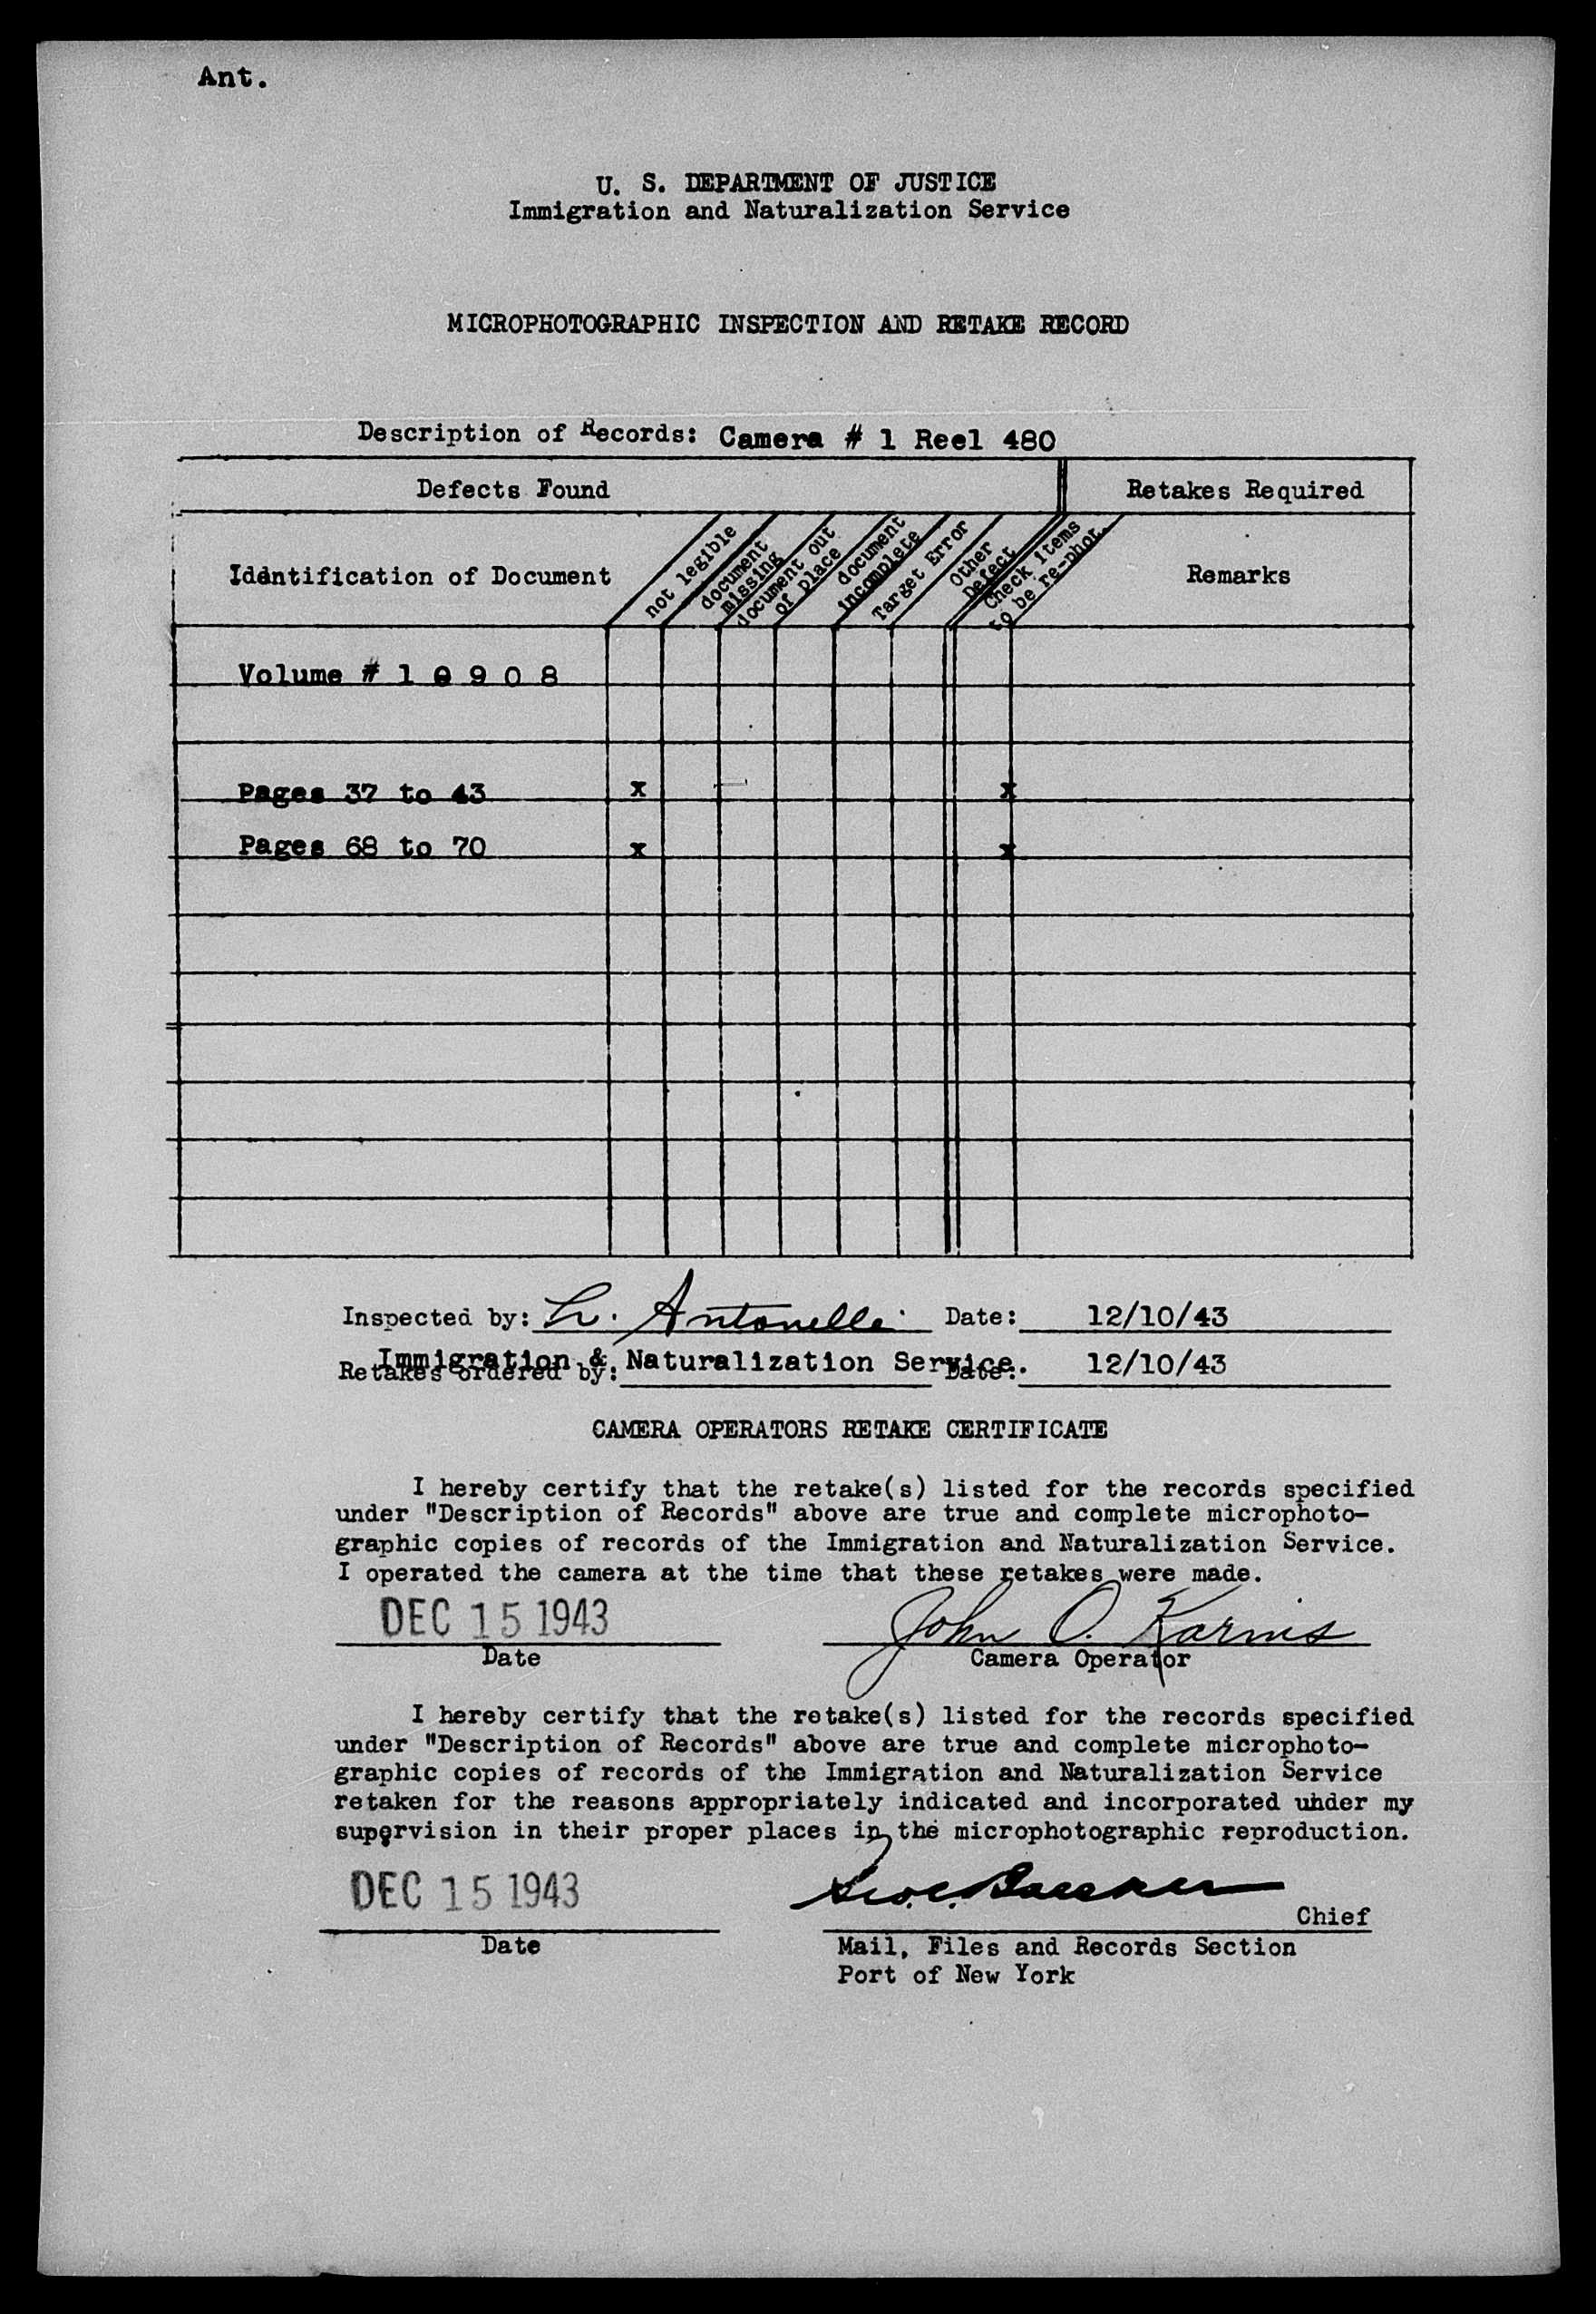 Ant.
U. S. DEPARTMENT OF JUSTICE
Immigration and Naturalization Service
MICROPHOTOGRAPHIC INSPECTION AND RETAKE RECORD
Description of Records: Camera # 1 Reel 480
Defects Found
Retakes Required
Identification of Document
not legible
document
missing
document out
of place
document
incomplete
Target Error
Other
Defect
Check items
to be re-phot.
Remarks
Volume # 1 0 9 0 8
Pages 37 to 43 x x
Pages 68 to 70 x x
Inspected by: L. Antonelli Date: 12/10/43
Immigration & Naturalization Service. 12/10/43
Retakes ordered by: Date:
CAMERA OPERATORS RETAKE CERTIFICATE
I hereby certify that the retake(s) listed for the records specified
under "Description of Records" above are true and complete microphoto-
graphic copies of records of the Immigration and Naturalization Service.
I operated the camera at the time that these retakes were made.
DEC 15 1943 John O. Karins
Date Camera Operator
I hereby certify that the retake(s) listed for the records specified
under "Description of Records" above are true and complete microphoto-
graphic copies of records of the Immigration and Naturalization Service
retaken for the reasons appropriately indicated and incorporated under my
supervision in their proper places in the microphotographic reproduction.
DEC 15 1943
Chief
Date Mail, Files and Records Section
Port of New York